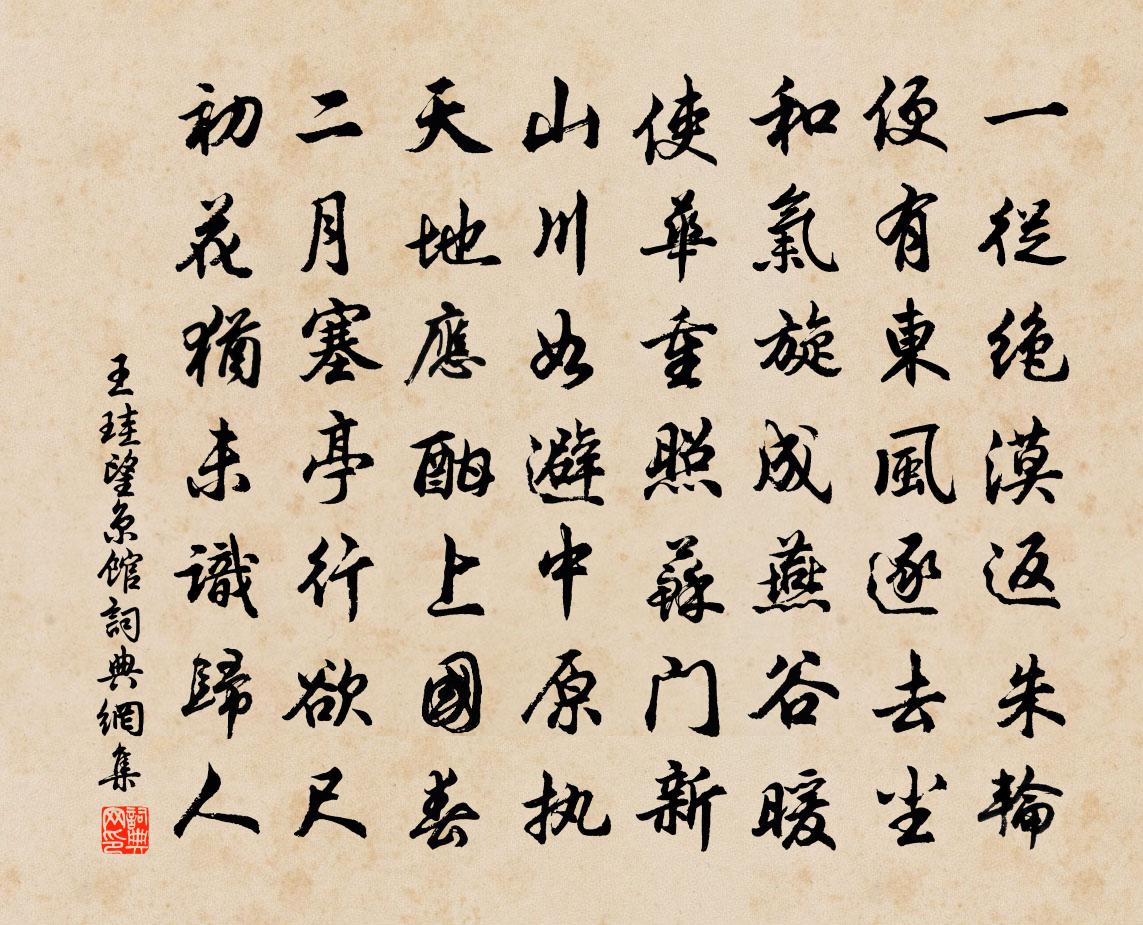 一從絶漠返朱輪
便有東風逐去尘
和氣旋成燕谷暖
使華重照蘇门新
山川如避中原执
天地應酣上國春
二月塞亭行欲尺
初花猶未識歸人
王珪望京館詞典網集
詞典网印